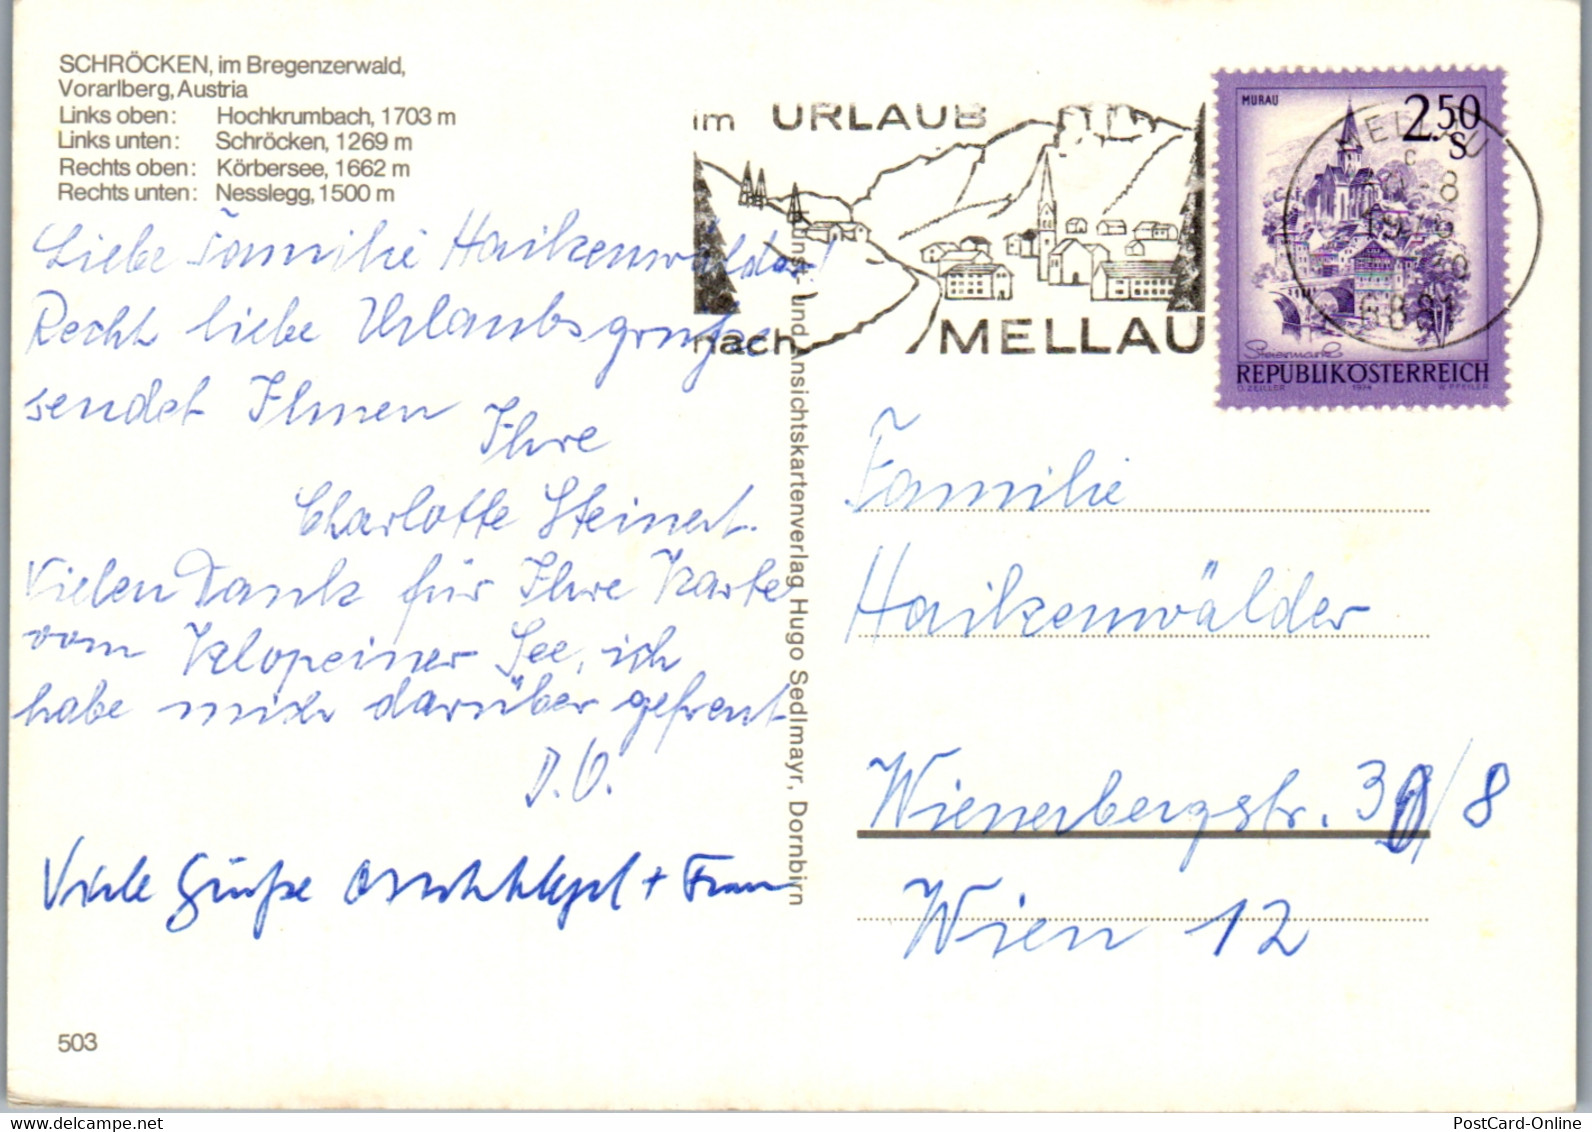 SCHRÖCKEN, im Bregenzerwald,
Vorarlberg, Austria
Links oben: Hochkrumbach, 1703 m
Links unten: Schröcken, 1269 m
Rechts oben: Körbersee, 1662 m
Rechts unten: Nesslegg, 1500 m
Liebe Familie Haikenwälder!
Recht liebe Urlaubsgrüße
sendet Ihnen
Ihre
Charlotte Steinert.
Vielen Dank für Ihre Karte
vom Klopeiner See, ich
habe mich darüber gefreut
D.O.
Viele Grüße + Frau
503
Kunst- und Ansichtskartenverlag Hugo Sedlmayr, Dornbirn
im URLAUB
nach MELLAU
MURAU
2.50
S
Steiermark
REPUBLIK ÖSTERREICH
O. ZEILER 1974 W. PFEILER
MELLAU
c
6881
Familie
Haikenwälder
Wienerbergstr. 3 /8
Wien 12
PostCard-Online